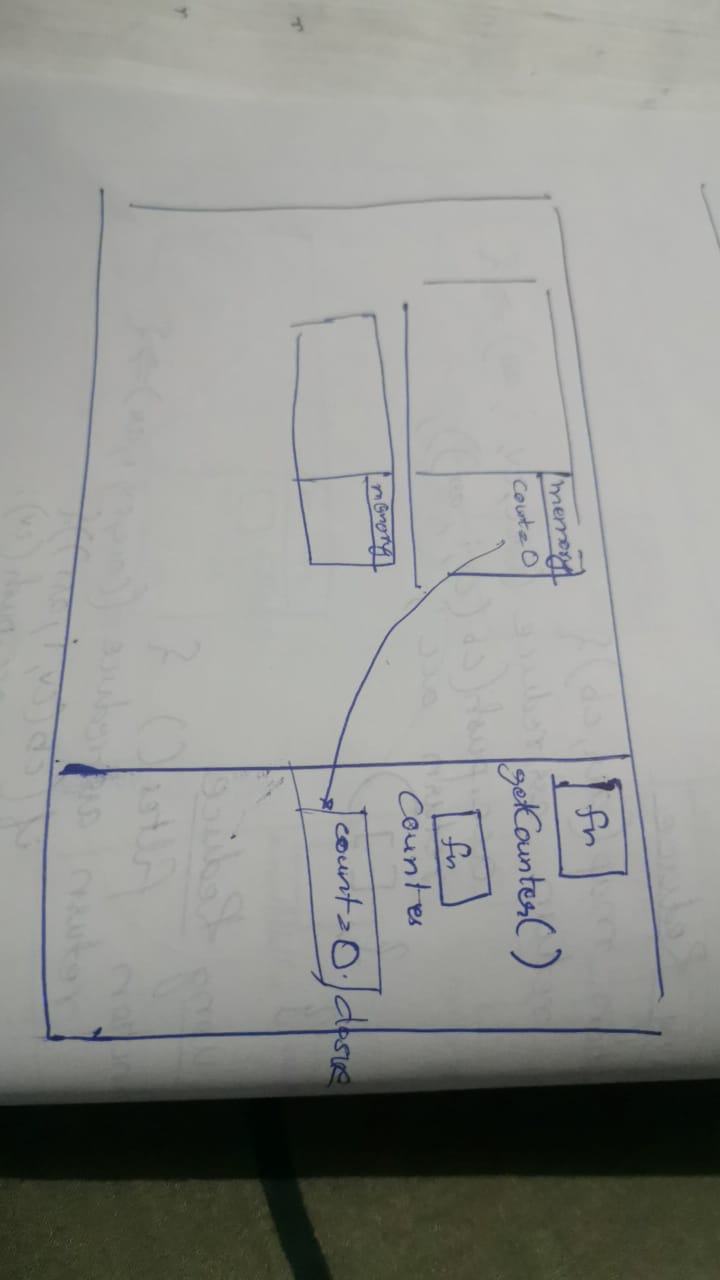 memory
count=0
memory
fn
getCounter()
fn
Counter
count=0.
closure